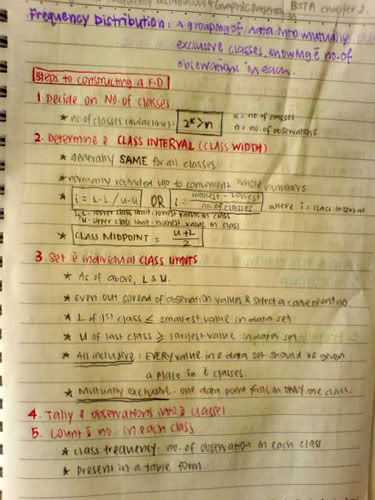 Frequency Distribution & Graphic Presentation BSTA chapter 2.
Frequency Distribution : a grouping of data into mutually
exclusive classes, showing t no. of
observations in each.
Steps to constructing a F.D
1. Decide on No. of classes
* no. of classes (guideline): 2^k > n k = no. of classes
n = no. of observations
2. Determine t CLASS INTERVAL (CLASS WIDTH)
* generally SAME for all classes
* normally rounded up to convenient whole numbers
* i = L-L / U-U OR i = highest - lowest / no. of classes where i = class interval
L: lower class limit: lowest value in class
U: upper class limit: highest value in class
* CLASS MIDPOINT = U+L / 2
3. Set t individual CLASS LIMITS
* As of above, L & U.
* Even out spread of observation values & select a convenient no.
* L of 1st class ≤ smallest value in data set
* U of last class ≥ largest value in data set
* All inclusive : EVERY value in t data set should be given
a place in t classes.
* Mutually exclusive : one data point falls in ONLY one class.
4. Tally t observations into t classes
5. Count t no. in each class
* class frequency: no. of observation in each class
* Present in a table form